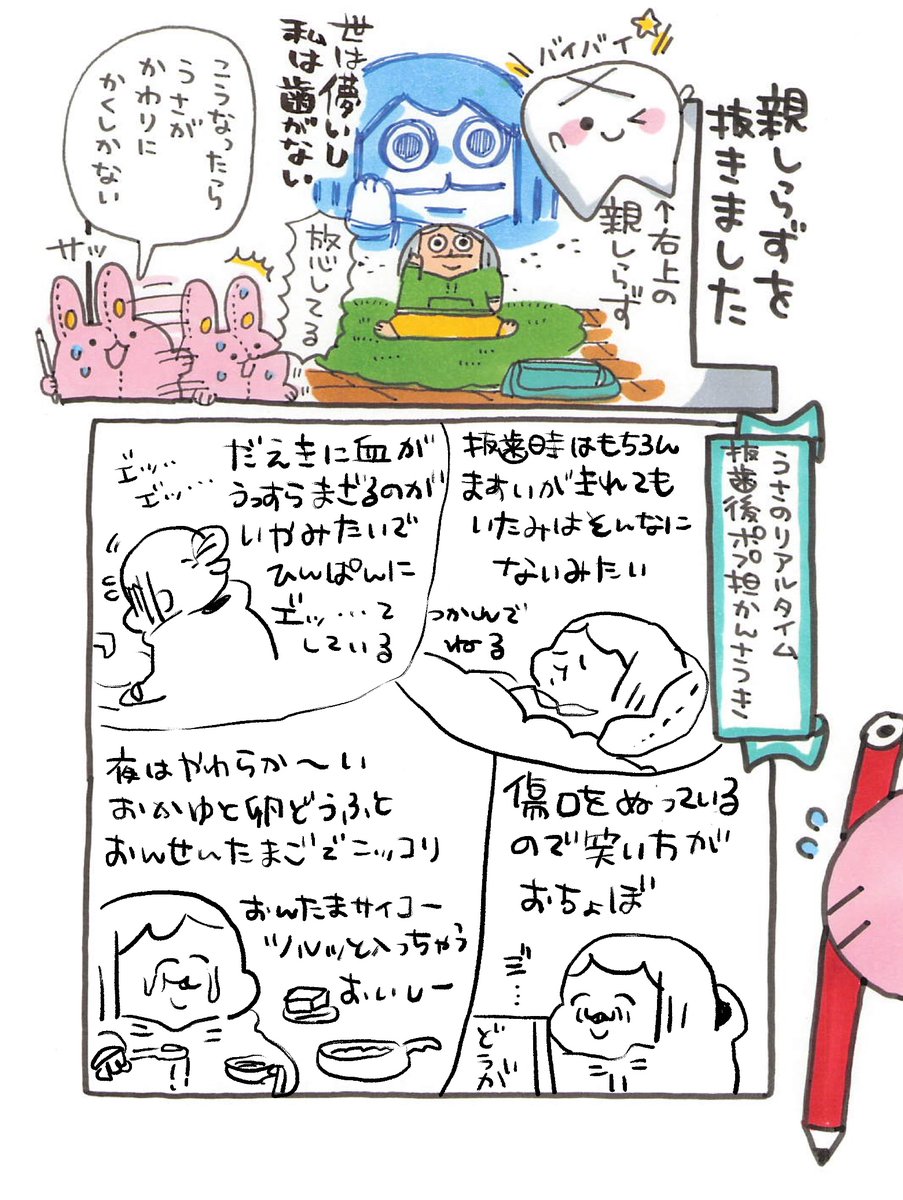 親しらずを
抜きました
バイバイ
↑右上の
親しらず
世は儚いし
私は歯がない
放心してる
こうなったら
うさが
かわりに
かくしかない
サッ
うさのリアルタイム
抜歯後ポプ担かんさつき
抜歯時はもちろん
ますいが走れても
いたみはそんなに
ないみたい
つかれんで
ねる
だえきに血が
うっすらまざるのが
いやみたいで
ひんぱんに
エッ…て
している
エッ…
エッ…
傷口をぬっている
ので笑い方が
おちょぼ
どうが
夜はやわらか〜い
おかゆと卵どうふと
おんせんたまごでニッコリ
おんたまサイコー
ツルッと入っちゃう
おいしー